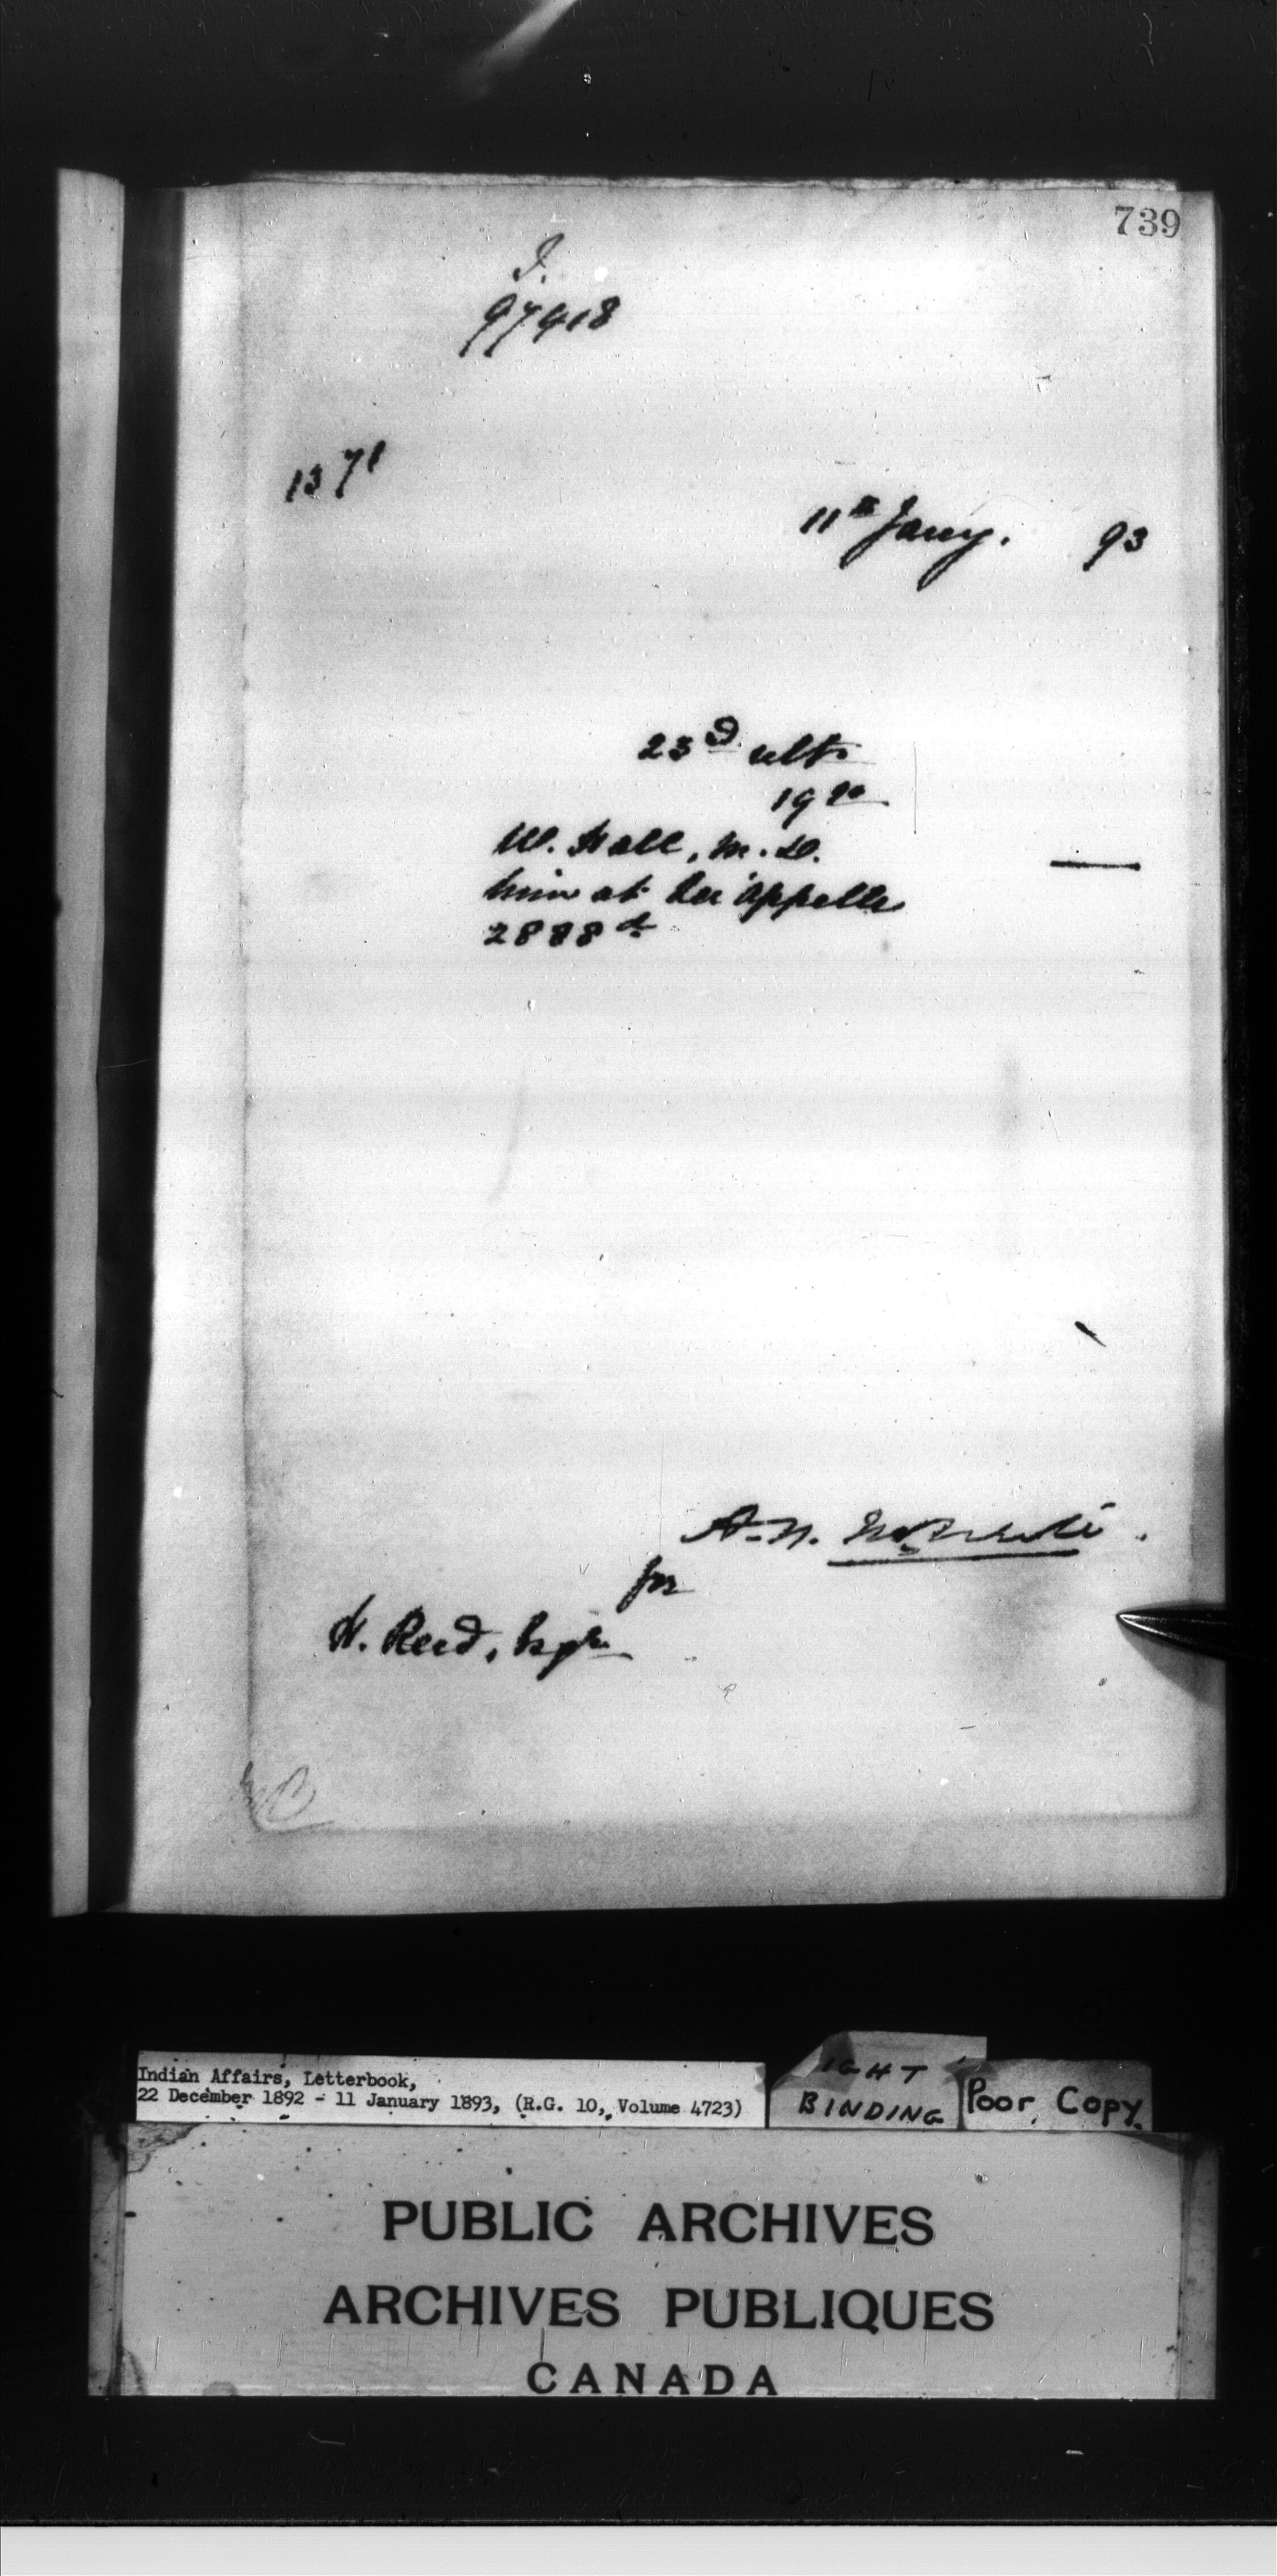 739
I.
97418
1371
11th Jany. 93
23d ulto
19 90
W. Hall, M.D.
him at Qu'Appelle
2888 dr
A. N. McNeill
for
H. Reed, Esqre
Indian Affairs, Letterbook,
22 December 1892 - 11 January 1893, (R.G. 10, Volume 4723)
IGHT
BINDING
Poor Copy.
PUBLIC ARCHIVES
ARCHIVES PUBLIQUES
CANADA